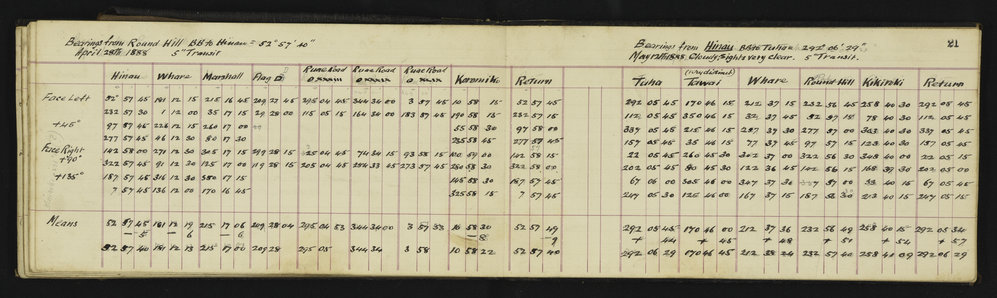 Bearings from Round Hill BB to Hinau = 52° 57' 40"
April 28th 1888 5" Transit
Hinau Whare Marshall Flag Ruae Road Ruae Road Ruae Road Return
Face Left 52 57 45 181 12 15 215 16 45 209 27 45 295 04 45 344 34 00 3 57 45 10 58 15 52 57 45
232 57 30 1 12 00 35 17 15 29 28 00 115 05 15 164 34 00 183 57 45 190 58 15 232 57 15
+45° 97 57 45 226 12 15 260 17 00 55 58 30 97 58 00
277 57 45 46 12 30 80 17 30 235 58 45 277 57 45
Face Right 142 58 00 271 12 30 305 17 15 299 28 15 25 04 45 74 34 15 93 58 15 100 59 00 142 58 15
+90° 322 57 45 91 12 30 125 17 00 119 28 15 205 04 45 254 33 45 273 57 45 280 58 30 322 58 00
+135° 187 57 45 316 12 30 350 17 15 145 58 30 187 57 45
7 57 45 136 12 00 170 16 45 325 58 15 7 57 45
Means 52 57 45 181 12 19 215 17 06 209 28 04 295 04 53 344 34 00 3 57 53 10 58 30 52 57 49
— 5 — 6 — 6 — 8 — 9
52 57 40 181 12 13 215 17 00 209 28 295 05 344 34 3 58 10 58 22 52 57 40
21
Bearings from Hinau BB to Tuhua 292° 06' 29"
May 12th 1888. Cloudy, Sights very clear. 5" Transit.
(very distinct)
Tuha Tawai Whare Round Hill Kikireki Return
292 05 45 170 46 15 212 37 15 232 56 45 258 40 30 292 05 45
112 05 45 350 46 15 32 37 45 52 57 15 78 40 30 112 05 45
337 05 45 215 46 15 257 37 30 277 57 00 303 40 30 337 05 45
157 05 45 35 46 15 77 37 45 97 57 15 123 40 30 157 05 45
22 05 45 260 45 30 302 37 00 322 56 30 348 40 00 22 05 15
202 05 45 80 45 30 122 36 45 142 56 15 168 39 30 202 05 00
67 06 00 305 46 00 347 37 30 57 00 33 40 15 67 05 45
247 05 30 125 46 00 167 37 15 187 56 30 213 40 15 247 05 15
292 05 45 170 46 00 212 37 36 232 56 49 258 40 15 292 05 32
+ 44 + 45 + 48 + 51 + 54 + 57
292 06 29 170 46 45 212 38 24 232 57 40 258 41 09 292 06 29